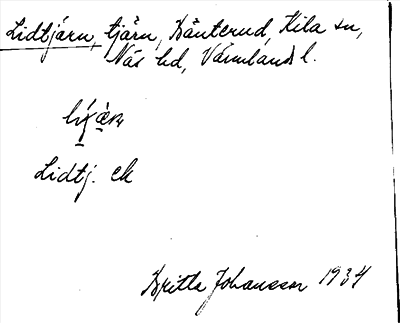 Lidtjärn, tjärn, Bänterud, Kila sn,
Näs hd, Värmlands l.
Lidtj. ek
Britta Johansson 1934